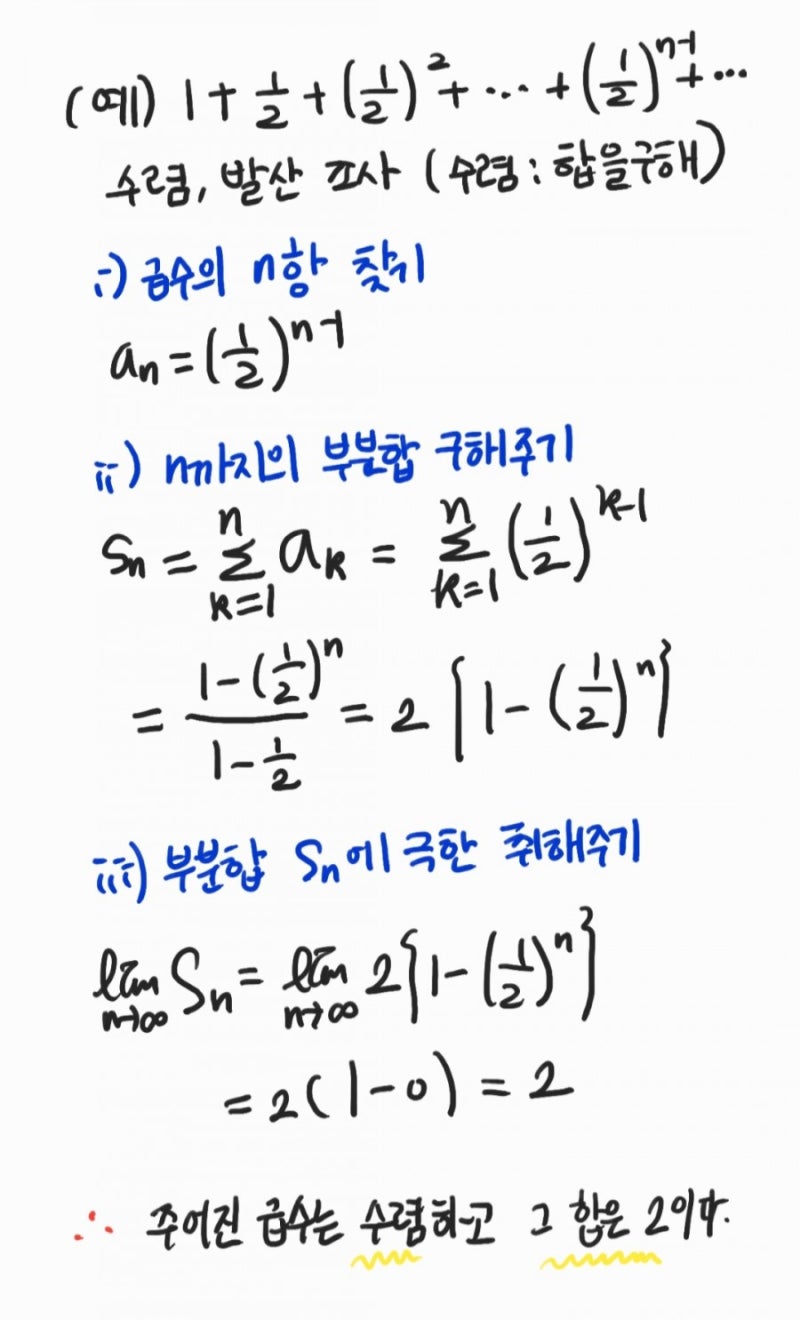 (예) 1 + 1/2 + (1/2)^2 + ··· + (1/2)^(n-1) + ···
수렴, 발산 조사 (수렴: 합을구해)
i) 급수의 n항 찾기
a_n = (1/2)^(n-1)
ii) n까지의 부분합 구해주기
S_n = Σ_(k=1)^n a_k = Σ_(k=1)^n (1/2)^(k-1)
= (1-(1/2)^n)/(1-1/2) = 2 {1-(1/2)^n}
iii) 부분합 S_n에 극한 취해주기
lim_(n→∞) S_n = lim_(n→∞) 2{1-(1/2)^n}
= 2(1-0) = 2
∴ 주어진 급수는 수렴하고 그 합은 2이다.